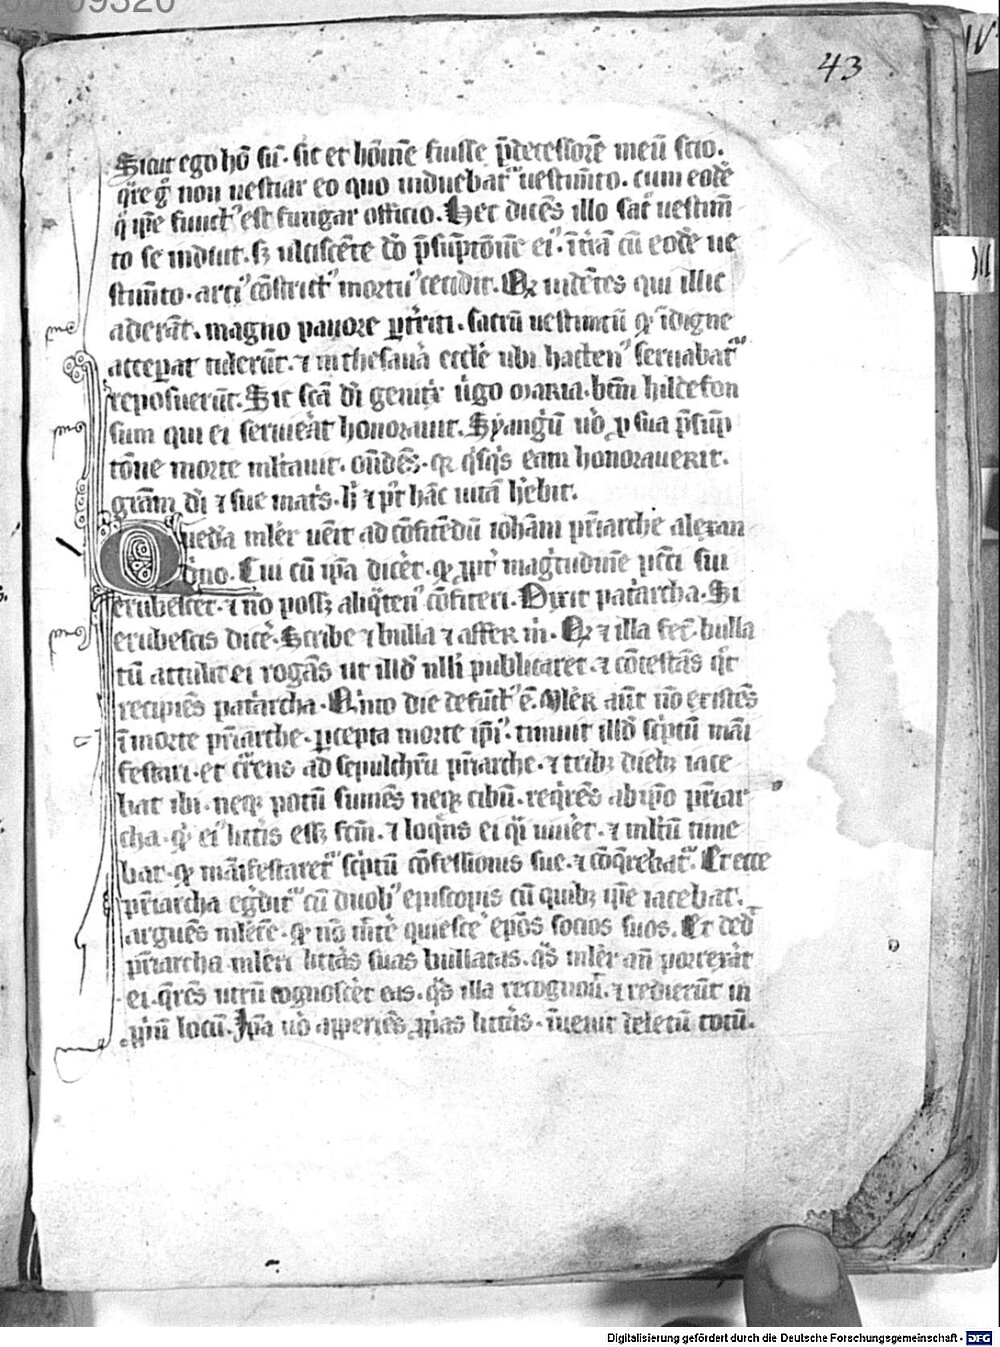 00109320
43
Sicut ego hō sū. sic et hōīnē fuisse p̄decessorē meū scio.
q̄re gͥ non uestiar eo quo induebatᷣ uestimēto. cum eodē
qͥ ip̄e functꝰ est fungar officio. Hec dicēs illo sac͛ uestim̄
to se induit. sꝫ ulciscēte dō p̄sūptōnē eiꝰ. ī t͛iā cū eodē ue
stim̄to. artiꝰ cōstrictꝰ mortuꝰ cecidit. Qꝛ uidētes qui illic
aderāt. magno pauore ꝑt͛riti. sacrū uestimtū qͥ īdigne
acceꝑat tulerūt. ⁊ in thesaur͛ eccl̄e ubi hactenꝰ seruabatᷣ
reposuerūt. Sic sc̄ā dī genitͥx ūgo maria. btm̄ hildefon
sum qui ei seruierat honorauit. Syangͥū uͦo ꝓ sua p̄sūp
tōne morte ml̄tauit. ōndēs. qꝛ qͥsqͥs eam honorauerit.
grām dī ⁊ sue mat͛s. hͥ ⁊ pͥ hāc uitā hēbit.
Quedā ml̄er uēit ad cōfitēdū ioh̄am pr̄iarche alexan
dͥno. Cui cū ip̄a dicēt. qͥ ꝓpt͛ magͥtudinē pc̄ti sui
erubescēt. ⁊ nō possꝫ aliq̄tenꝰ cōfiteri. Dixit pat͛archa. Si
erubescis dicē. Scribe ⁊ bulla ⁊ affer m̄. Qꝛ ⁊ illa fec̄. bulla
tū attulit ei rogās ut illd̄ nll̄i publicaret. ⁊ cōtestās qͥt
recipiēs pat͛archa. Qͥnto die defūctꝰ ē. Ml̄er aūt nō existēs
ī morte pr̄iarche. ꝑcepta morte ip̄iꝰ. timuit illd̄ sc͛ptū māi
festari. et c͛rēns ad sepulchrū pr̄iarche. ⁊ tribꝫ diebꝫ iace
bat ibi. neqꝫ potū sumēs neqꝫ cibū. req͛rēs ab ip̄o pr̄iar
cha. qͥ eiꝰ litt͛is essꝫ fcm̄. ⁊ loq̄ns ei qͥi uiuēt. ⁊ ml̄tū time
bat. qͥ māifestaretᷣ sc͛ptū cōfessionis sue. ⁊ cōq͛rebatᷣ. Et ecce
pr̄iarcha eg͛ditᷣ cū duobꝰ episcopis cū quibꝫ ip̄e iacebat.
arguēs ml̄erē. qͥ nō m̄tēt quiescē ep̄os socios suos. Et ded̄
pr̄iarcha ml̄eri litt͛as suas bullatas. qͥs ml̄er aū porrexāt
ei. q͛rēs utrū cognoscēt eas. qͥs illa recognoū. ⁊ redierūt in
ꝓpͥū locū. Ip̄a uͦo aꝑiēs ꝓpͥas litt͛as. īuenit deletū totū.
Digitalisierung gefördert durch die Deutsche Forschungsgemeinschaft - DFG